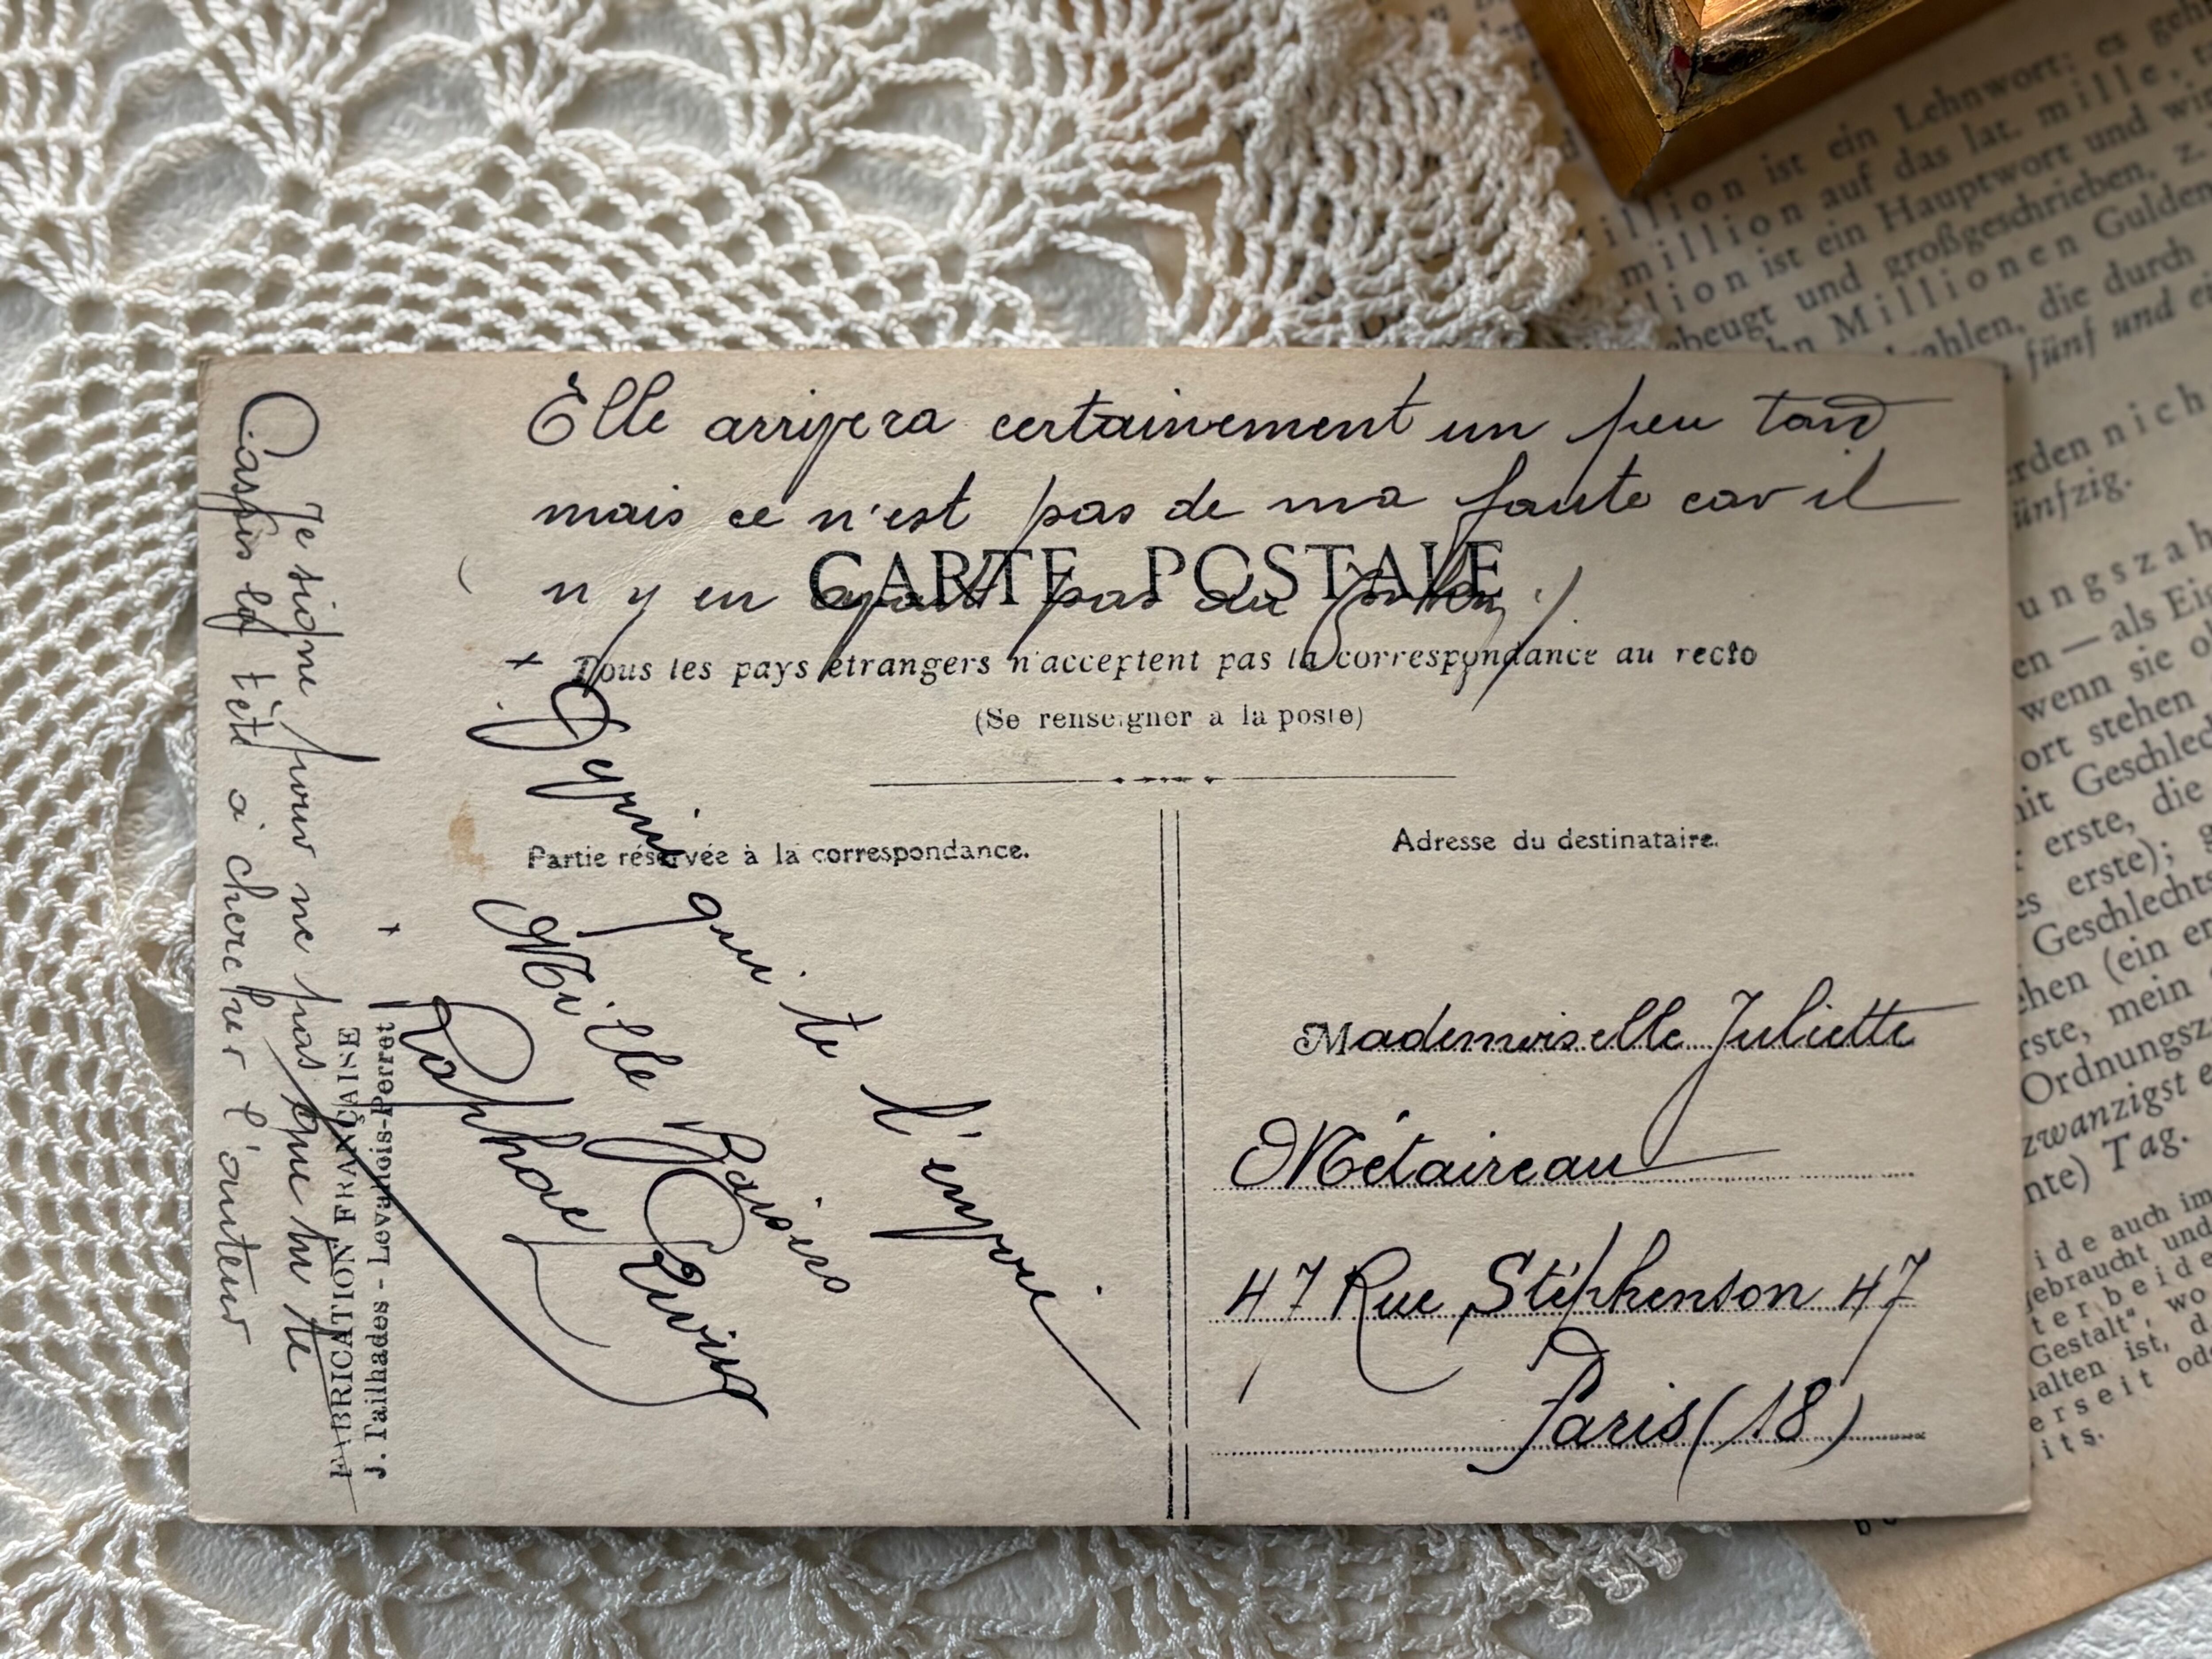 Elle arrivera certainement un peu tard
mais ce n'est pas de ma faute car il
n'y en avait pas au
CARTE POSTALE
Tous les pays étrangers n'acceptent pas la correspondance au recto
(Se renseigner à la poste)
Partie réservée à la correspondance.
qui te l'envoie
Mille Baisers
Raphael
Je signe pour ne pas que tu te
la tête à chercher l'auteur
FABRICATION FRANÇAISE
J. Tailhades - Levallois-Perret
Adresse du destinataire.
Mademoiselle Juliette
Métaireau
47 Rue Stéphenson 47
Paris (18)
illion ist ein Lehnwort; es geh
million auf das lat. mille, t
lion ist ein Hauptwort und wi
beugt und großgeschrieben, z.
hn Millionen Gulden
zahlen, die durch
fünf und e
rden nich
ünfzig.
ungszah
en — als Eis
wenn sie o
ort stehen
it Geschlec
erste, die
es erste); g
Geschlechts
ehen (ein er
rste, mein
Ordnungsz
zwanzigst e
nte) Tag.
ide auch im
gebraucht und
ter beide
Gestalt", wo
alten ist, d
erseit od
its.